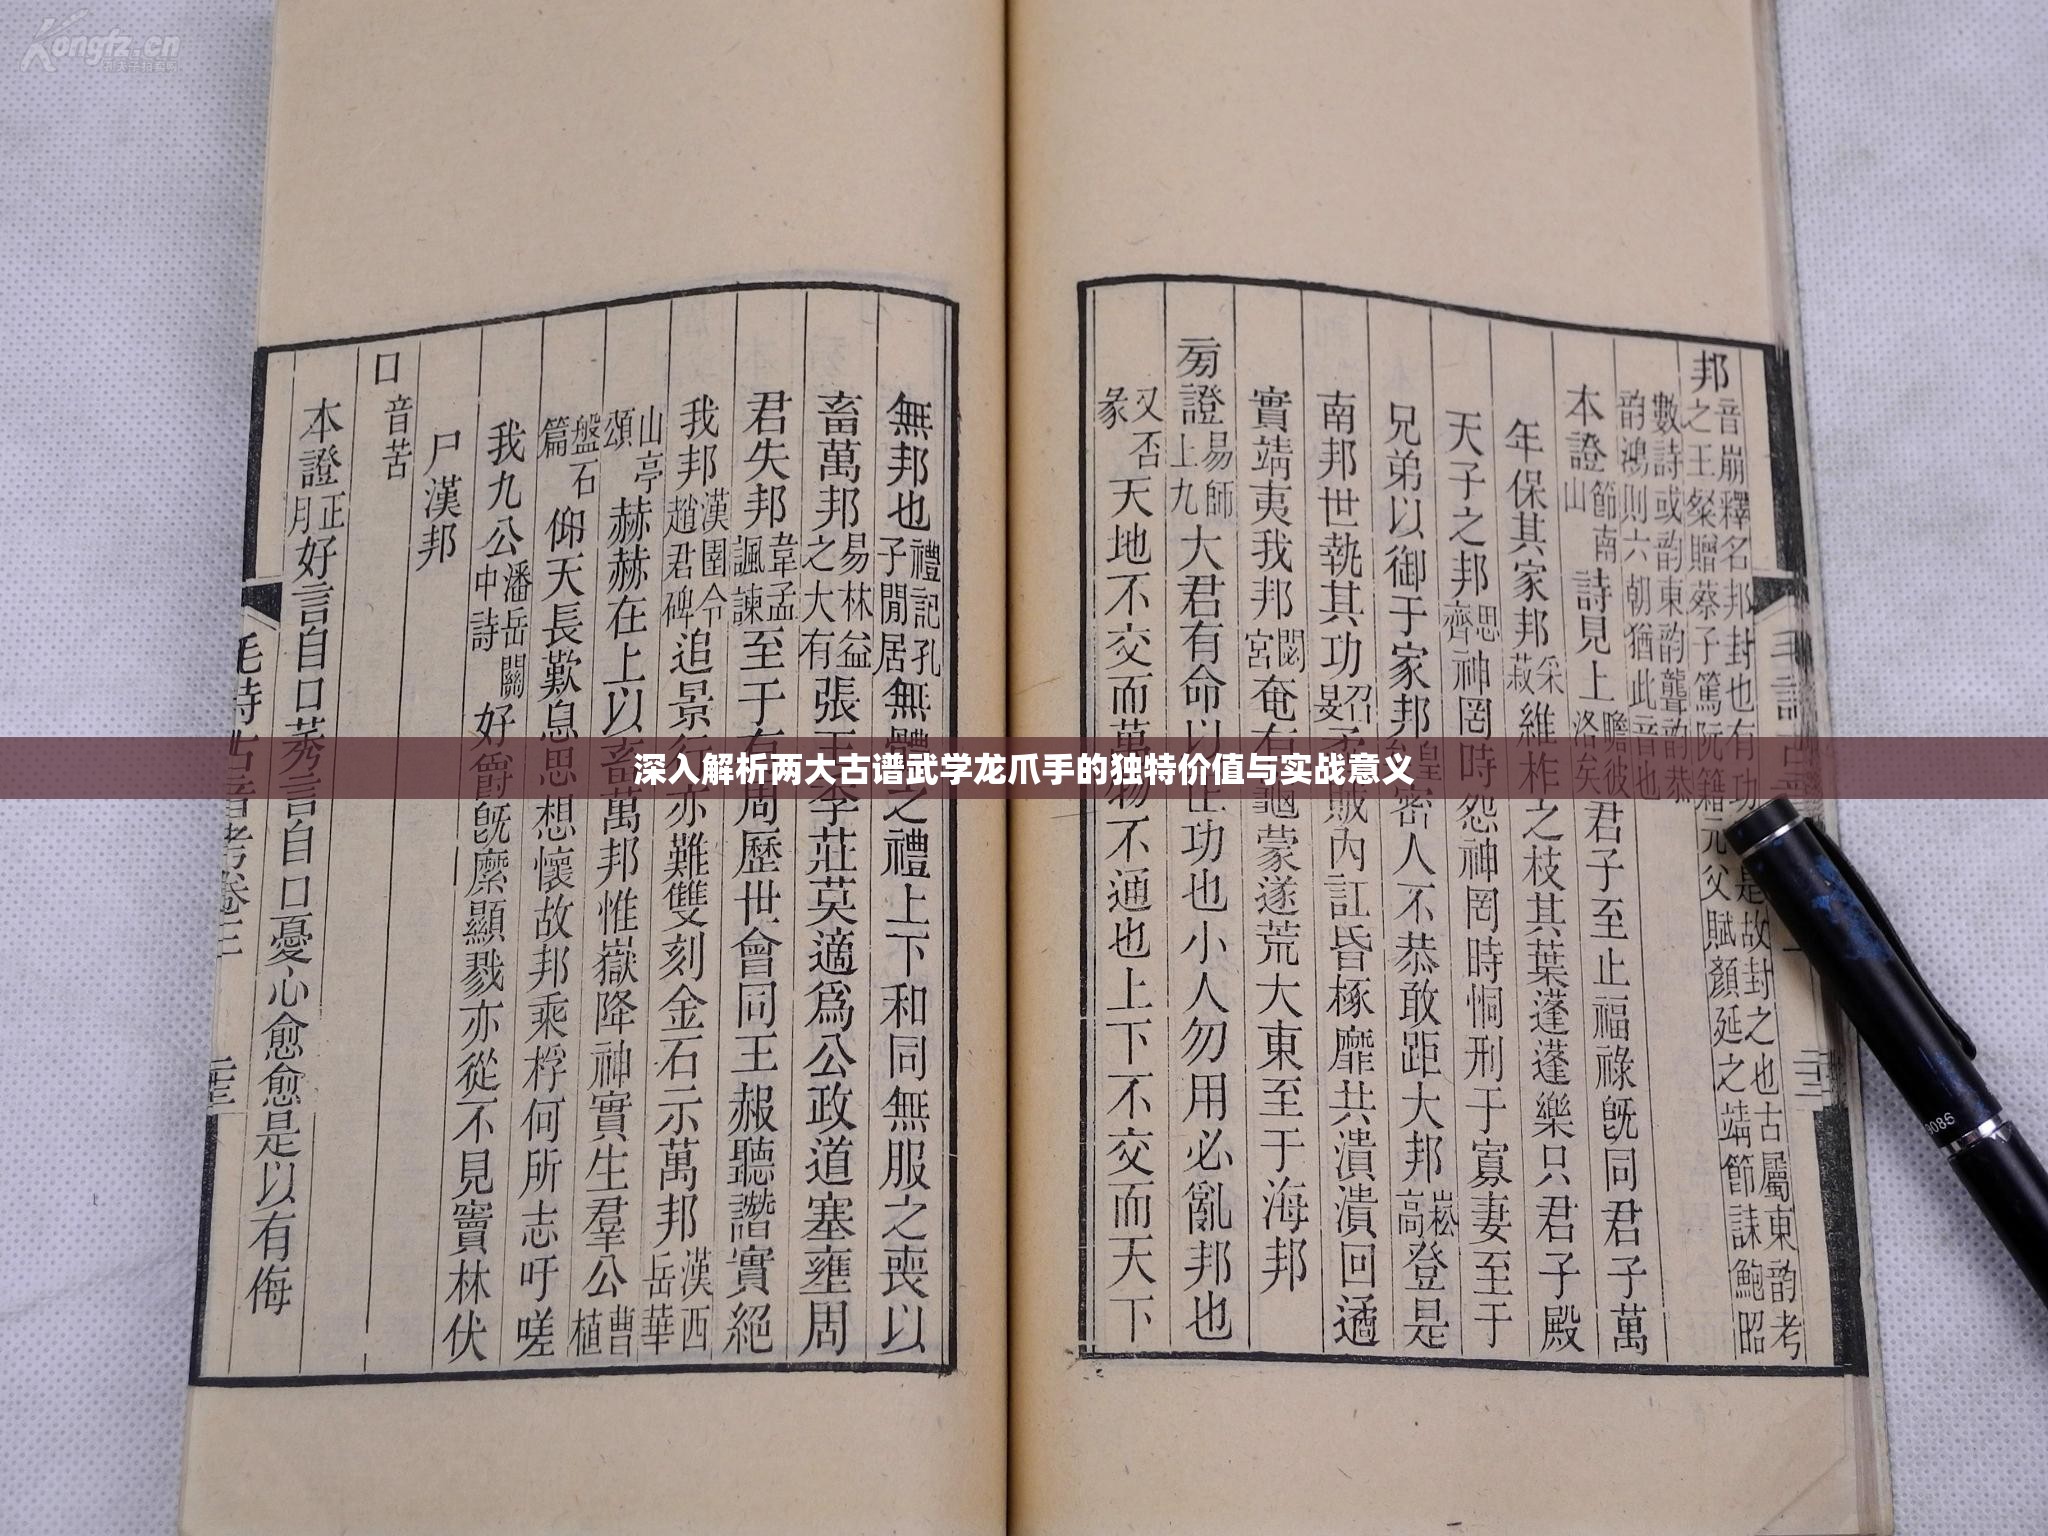 Kongfz.cn
孔夫子拍卖网
邦音崩釋名邦封也有功是故封之也古屬東韵考
之王粲贈蔡子篤阮籍元父賦顏延之靖節誄鮑昭
數詩或韵東韵聾韵恭
韵鴻則六朝猶此音也
本證節南山詩見上瞻彼洛矣君子至止福祿旣同君子萬
年保其家邦采菽維柞之枝其葉蓬蓬樂只君子殿
天子之邦思齊神罔時怨神罔時恫刑于寡妻至于
兄弟以御于家邦皇密人不恭敢距大邦崧高登是
南邦世執其功召旻賊內訌昏椓靡共潰潰回遹
實靖夷我邦閟宮奄有龜蒙遂荒大東至于海邦
易師上九大君有命以功也小人勿用必亂邦也
又否彖天地不交而萬物不通也上下不交而天下
無邦也禮記孔子閒居無體之禮上下和同無服之喪以
畜萬邦易林益之大有張王李莊莫適為公政道塞壅周
君失邦韋孟諷諫至于有周歷世會同王赧聽譖實絕
我邦漢圉令趙君碑追景行亦難雙刻金石示萬邦漢西岳華
山亭頌赫赫在上以畜萬邦惟嶽降神實生羣公曹植
盤石篇仰天長歎息思想懷故邦乘桴何所志吁嗟
我九公潘岳關中詩好爵旣縻顯戮亦從不見竇林伏
尸漢邦
口音苦
本證正月好言自口莠言自口憂心愈愈是以有侮
毛詩古音考卷三
深入解析两大古谱武学龙爪手的独特价值与实战意义
9086